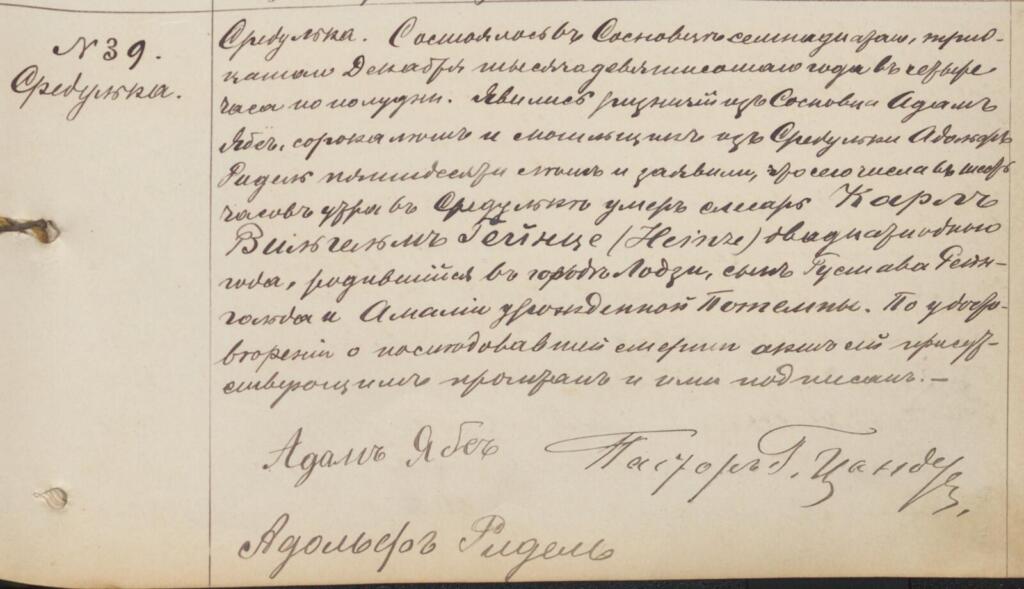 N 39.
Средулька.
Средулька. Состоялось въ Сосновцѣ семнадцатаго, тридцатаго Декабря тысяча девятисотаго года въ четыре
часа по полудни. Явились ризничій изъ Сосновца Адамъ
Ябсъ, сорока лѣтъ и могильщикъ изъ Средульки Адольфъ
Ридель пятидесяти лѣтъ и заявили, что сего числа въ шесть
часовъ утра въ Средулькѣ умеръ слесарь Карлъ
Вильгельмъ Гейнце (Heinze) двадцати одного
года, родившійся въ городѣ Лодзи, сынъ Густава Рейн-
гольда и Амаліи урожденной Потемпы. По удосто-
вѣреніи о послѣдовавшей смерти актъ сей присут-
ствующимъ прочитанъ и ими подписанъ.—
Адамъ Ябсъ
Пасторъ Г. Цандеръ.
Адольфъ Ридель